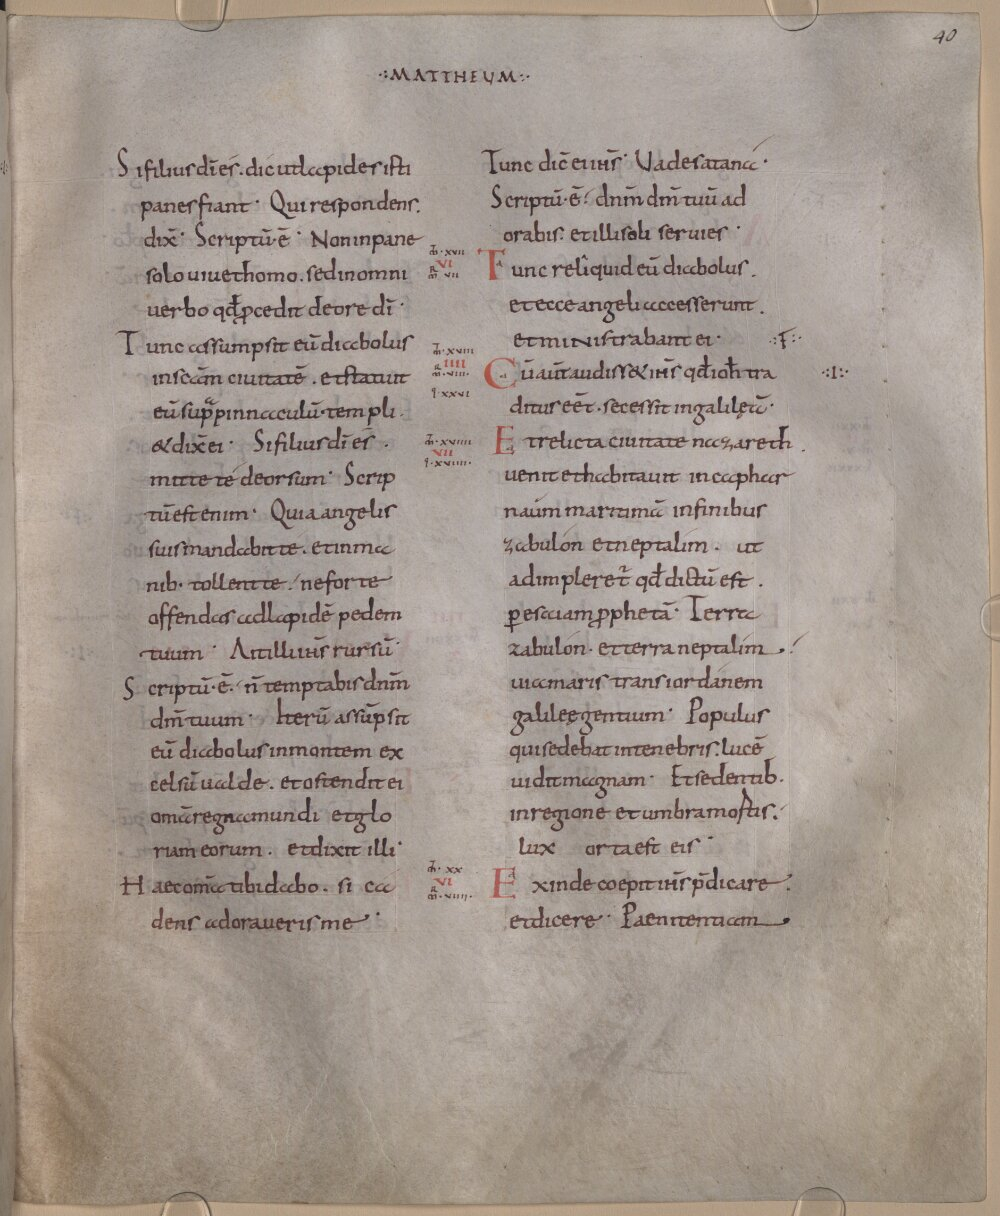 40
·:MATTHEUM:·
Si filius dī ēs. dic ut lapides isti
panes fiant· Qui respondens.
dix̄· Scriptū·ē· Non in pane
solo uiuet homo. sed in omni
uerbo qđ ꝓcedit de ore dī·
Tunc assumpsit eū diabolus
in sc̄am ciuitatē. et statuit
eū sup̄ pinnaculū templi.
& dix̄ ei· Si filius dī ēs.
mitte te deorsum· Scrip
tū est enim· Quia angelis
suis mandabit te. et in ma
nib· tollent te. ne forte
offendas ad lapidē pedem
tuum· Ait illi ih̄s rursū·
Scriptū·ē· n̄ temptabis dn̄m
dm̄ tuum· Iterū assūpsit
eū diabolus in montem ex
celsū ualde. et ostendit ei
om̄a regna mundi et glo
riam eorum. et dixit illi·
Haec om̄a tibi dabo. si ca
dens adoraueris me·
m̄·xvii
VI
m̄ vii
m̄·xviii
IIII
m̄·viii·
i·xxvi
m̄·xviiii
VII
i·xviiii·
m̄·xx
VI
m̄·viiii·
Tunc dic̄ ei ih̄s· Uade satana·
Scriptū·ē· dn̄m dm̄ tuū ad
orabis. et illi soli seruies·
Tunc reliquid eū diabolus.
et ecce angeli accesserunt.
et ministrabant ei· ·:F:·
Cū aūt audiss& ih̄s qđ ioh̄ tra
ditus eēt. secessit in galilęā· ·:I:·
Et relicta ciuitate nazareth.
uenit et habitauit in caphar
naūm maritimā in finibus
zabulon et neptalim. ut
adimpleret̄ qđ dictū est.
ꝑ esaiam ꝓphetā· Terra
zabulon· et terra neptalim.
uia maris trans iordanem
galileę gentium· Populus
qui sedebat in tenebris. lucē
uidit magnam· Et sedentib·
in regione et umbra mortis.
lux orta est eis·
Exinde coepit ih̄s p̄dicare.
et dicere· Paenitentiam